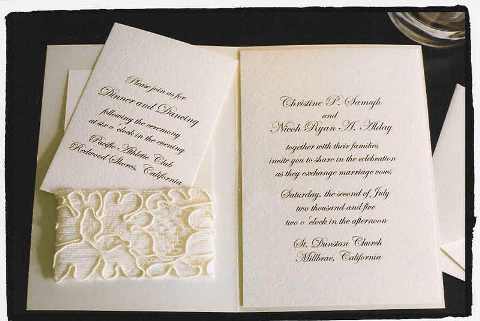 Please join us for
Dinner and Dancing
following the ceremony
at six o'clock in the evening
Pacific Athletic Club
Redwood Shores, California
Christine P. Samagh
and
Nicoh Ryan A. Alday
together with their families
invite you to share in the celebration
as they exchange marriage vows
Saturday, the second of July
two thousand and five
two o'clock in the afternoon
St. Dunstan Church
Millbrae, California